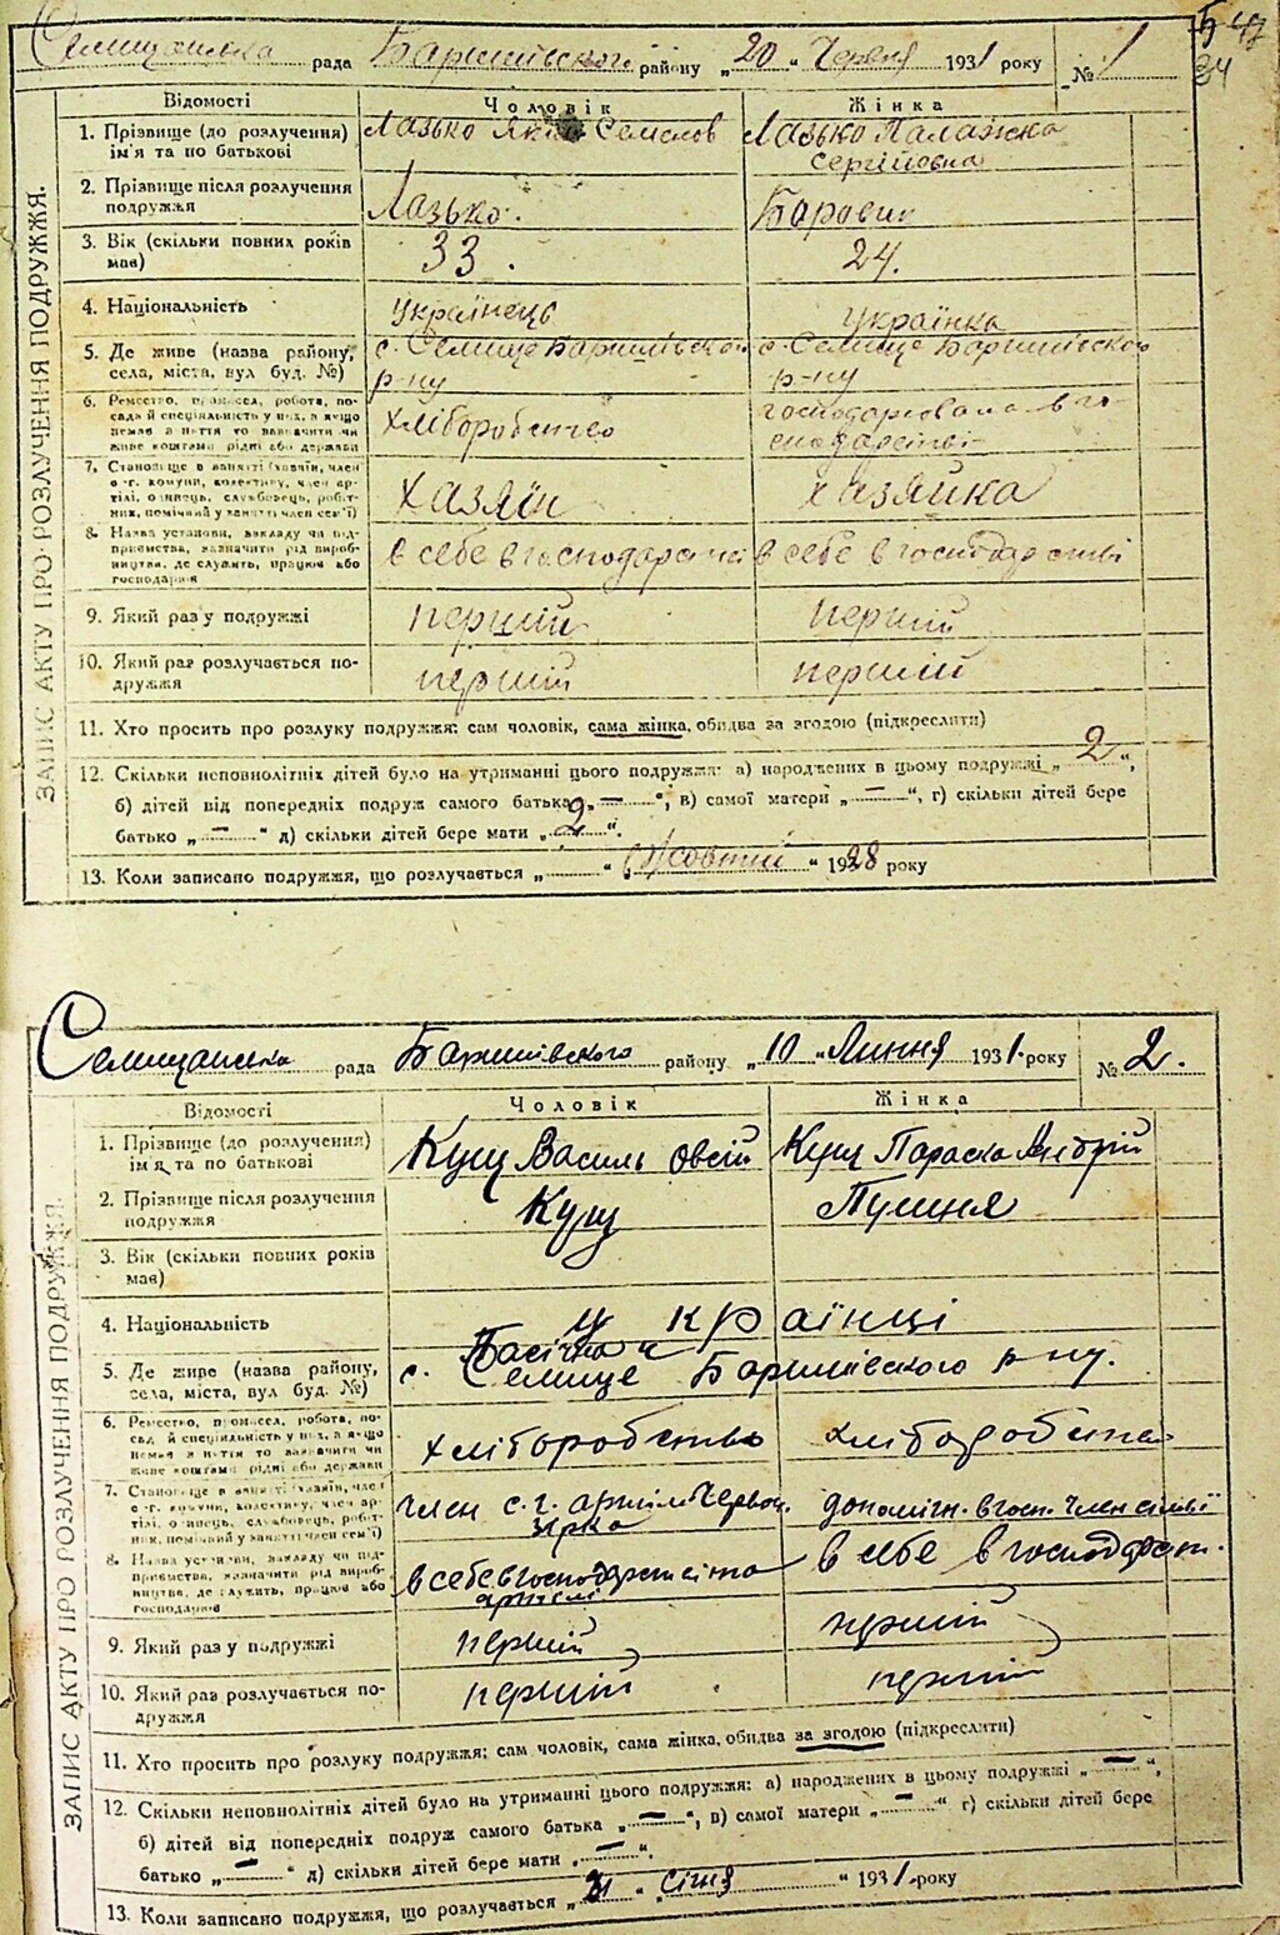 Б 47
34
Селищанська рада Баришівського району „20“ Червня 1931 року № 1
ЗАПИС АКТУ ПРО РОЗЛУЧЕННЯ ПОДРУЖЖЯ.
Відомості Чоловік Жінка
1. Прізвище (до розлучення) ім'я та по батькові Лазько Яким Семенов Лазько Палажка
Сергійовна
2. Прізвище після розлучення подружжя Лазько. Боровик
3. Вік (скільки повних років мав) 33. 24.
4. Національність Українець Українка
5. Де живе (назва району, села, міста, вул буд. №) с. Селище Баришівсько с. Селище Баришівского
р-ну р-ну
6. Ремество, промисел, робота, посада й спеціяльність у них, а якщо немає заняття то зазначити чи живе коштами рідні або держави хліборобство господарювала в го-
сподарстві
7. Становище в занятті (хазяїн, член с-г. комуни, колективу, член артілі, одинець, службовець, робітник, помічний у занятті член сем'ї) хазяїн хазяйка
8. Назва установи, закладу чи підприємства, зазначити рід виробництва, де служить, працює або господарює в себе в господарстві в себе в господарстві
9. Який раз у подружжі перший перший
10. Який раз розлучається подружжя перший перший
11. Хто просить про розлуку подружжя: сам чоловік, сама жінка, обидва за згодою (підкреслити)
12. Скільки неповнолітніх дітей було на утриманні цього подружжя: а) народжених в цьому подружжі „2“,
б) дітей від попередніх подруж самого батька „—“, в) самої матери „—“, г) скільки дітей бере
батько „—“ д) скільки дітей бере мати „2“.
13. Коли записано подружжя, що розлучається „ “ „Жовтий“ 1928 року
Селищанська рада Баришівського району „10“ Липня 1931. року № 2.
ЗАПИС АКТУ ПРО РОЗЛУЧЕННЯ ПОДРУЖЖЯ.
Відомості Чоловік Жінка
1. Прізвище (до розлучення) ім'я та по батькові Кущ Василь Овсій Кущ Параска Андрій
2. Прізвище після розлучення подружжя Кущ
3. Вік (скільки повних років мав)
4. Національність Українці
5. Де живе (назва району, села, міста, вул буд. №) Пасічна
с. Селище Баришівского р-ну.
6. Ремество, промисел, робота, посада й спеціяльність у них, а якщо немає заняття то зазначити чи живе коштами рідні або держави хліборобство хліборобство
7. Становище в занятті (хазяїн, член с-г. комуни, колективу, член артілі, одинець, службовець, робітник, помічний у занятті член сем'ї) член с. г. артілі Червон. допомічн. в госп. член сімьї
зірка
8. Назва установи, закладу чи підприємства, зазначити рід виробництва, де служить, працює або господарює в себе в господарстві та в себе в господарст.
артілі
9. Який раз у подружжі перший перший
10. Який раз розлучається подружжя перший перший
11. Хто просить про розлуку подружжя: сам чоловік, сама жінка, обидва за згодою (підкреслити)
12. Скільки неповнолітніх дітей було на утриманні цього подружжя: а) народжених в цьому подружжі „—“,
б) дітей від попередніх подруж самого батька „—“, в) самої матери „—“ г) скільки дітей бере
батько „—“ д) скільки дітей бере мати „—“.
13. Коли записано подружжя, що розлучається „ “ „Січня“ 1931. року